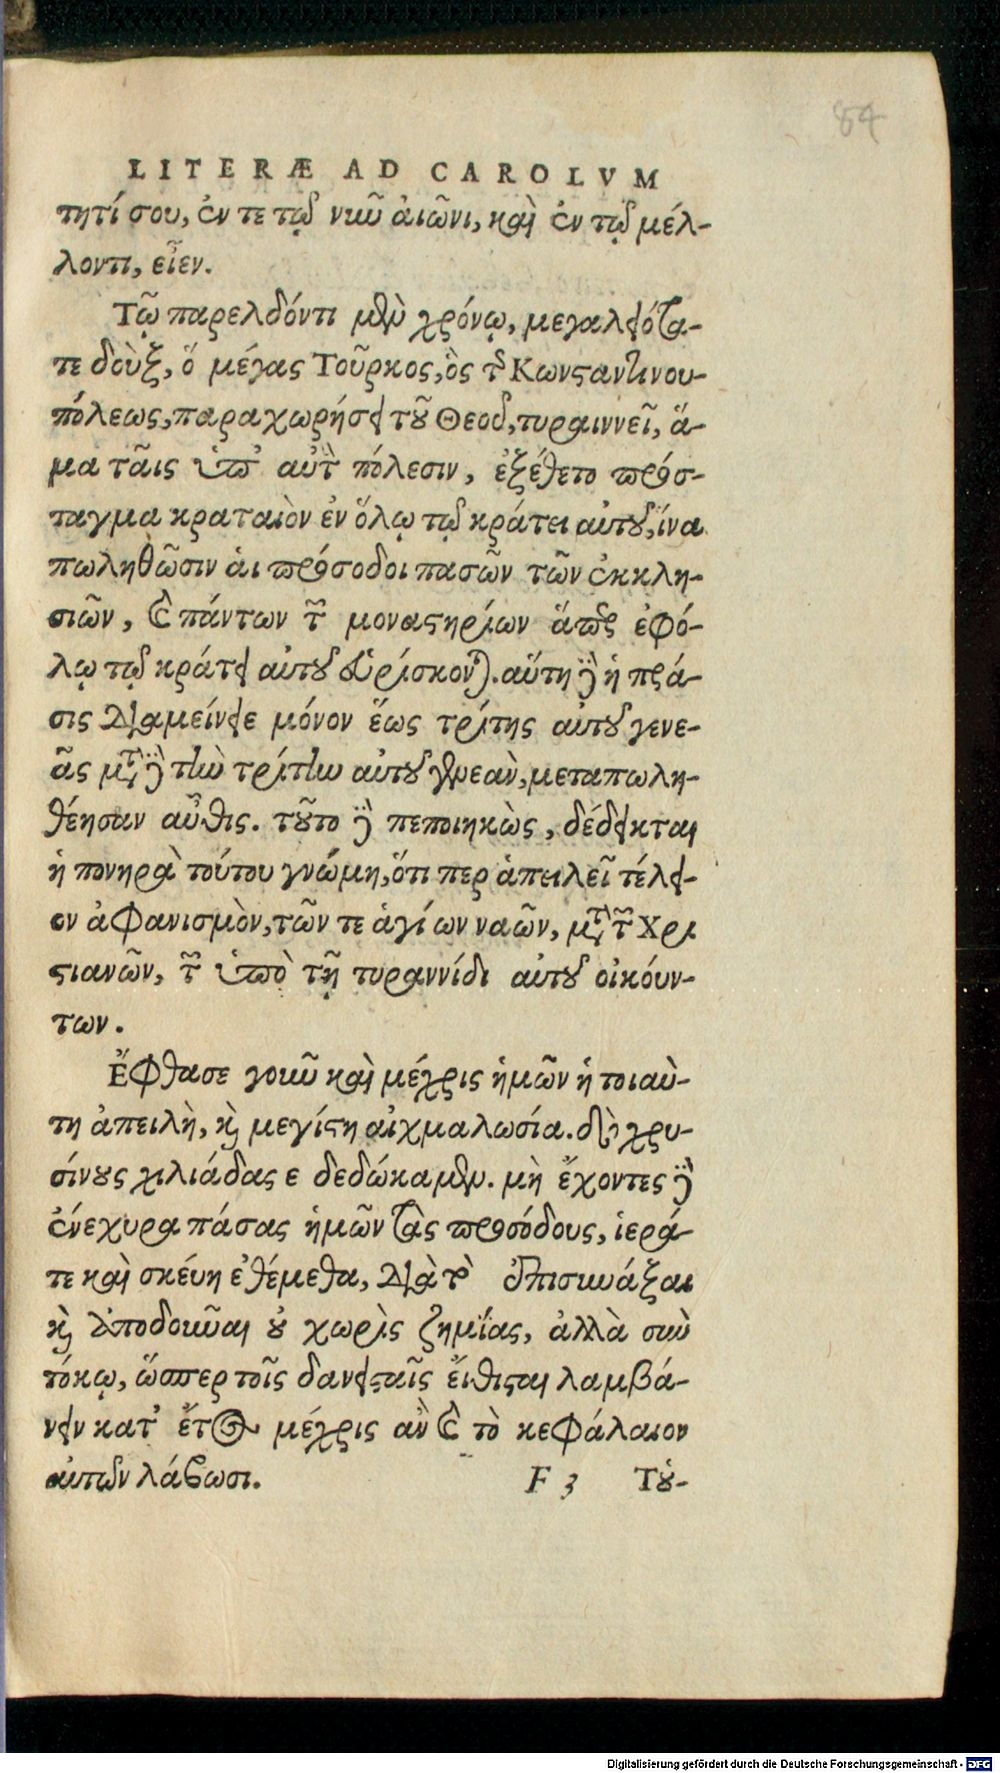 84
LITERÆ AD CAROLVM
τητί σου, ἐν τε τῷ νῦν ἀιῶνι, καὶ ἐν τῷ μέλ-
λοντι, εἶεν.
Τῷ παρελδόντι μὲν χρόνῳ, μεγαλειότα-
τε δοὺξ, ὅ μέγας Τοῦρκος, ὃς τῆς Κωνσαντινου-
πόλεως, παραχωρήσει τοῦ Θεοῦ, τυραιννεῖ, ἅ-
μα τᾶις ὑπ' αὐτὸ πόλεσιν, ἐξέθετο πρόσ-
ταγμα κραταιὸν ἐν ὅλῳ τῷ κράτει αὐτοῦ, ἵνα
πωληθῶσιν ἁι πρόσοδοι πασῶν τῶν ἐκκλη-
σιῶν, καὶ πάντων τῶν μοναστηρίων ἅπερ ἐφό-
λῳ τῷ κράτει αὐτοῦ εὑρίσκονται. αὕτη δὲ ἡ πρά-
σις διαμείνειε μόνον ἕως τρίτης αὐτοῦ γενε-
ᾶς μετὰ δὲ τὴν τρίτην αὐτοῦ γενεὰν, μεταπωλη-
θέησαν αὖθις. τοῦτο δὲ πεποιηκὼς, δέδεικται
ἡ πονηρὰ τούτου γνώμη, ὅτι περ ἀπειλεῖ τέλει-
ον ἀφανισμὸν, τῶν τε ἁγίων ναῶν, μετὰ τῶν Χρι
στιανῶν, τῶν ὑπὸ τῇ τυραννίδι αὐτοῦ οἰκούν-
των.
Ἔφθασε γοῦν καὶ μέχρις ἡμῶν ἡ τοιαὺ-
τη ἀπειλὴ, καὶ μεγίστη αἰχμαλωσία. διὸ χρυ-
σίνους χιλιάδας ε δεδώκαμεν. μὴ ἔχοντες δὲ
ἐνέχυρα πάσας ἡμῶν τὰς προσόδους, ἱερά-
τε καὶ σκέυη ἐθέμεθα, διὰ τὸ ἐπισυνάξαι
καὶ ἀποδοῦναι οὐ χωρὶς ζημΐας, ἀλλὰ σὺν
τόκῳ, ὥσπερ τοῖς δανεισταῖς ἔιθισται λαμβά-
νειν κατ' ἔτος μέχρις ἂν καὶ τὸ κεφάλαιον
αὐτῶν λάβωσι. F 3 Τού-
Digitalisierung gefördert durch die Deutsche Forschungsgemeinschaft - DFG